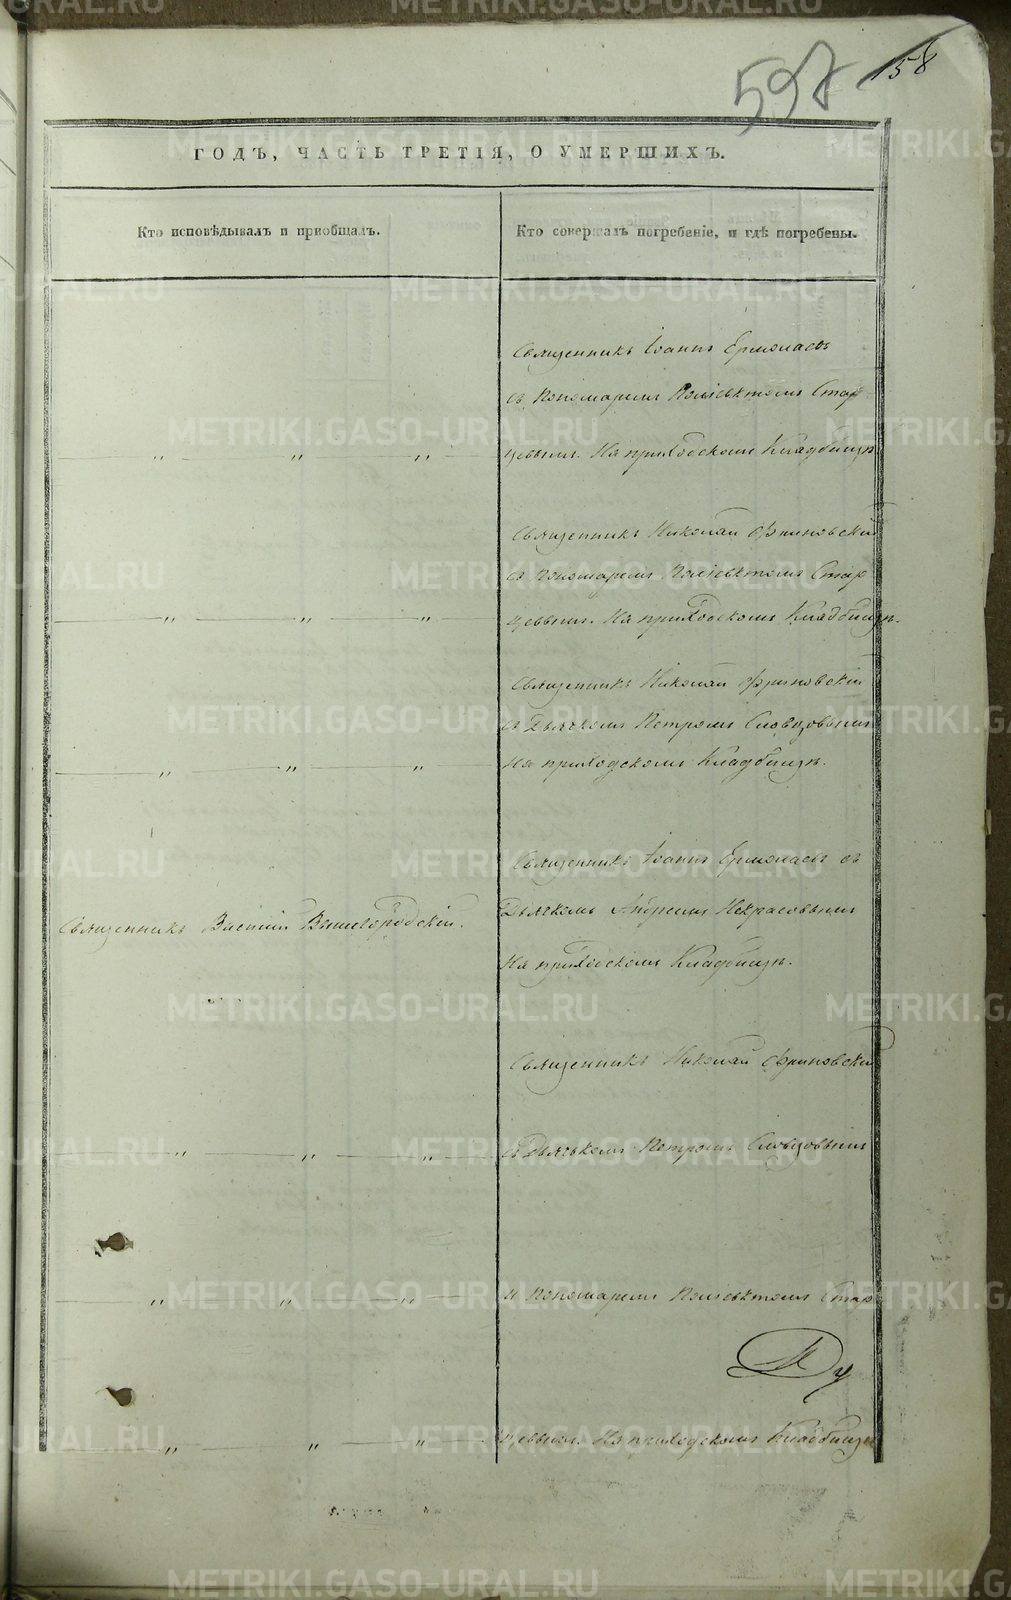 597 158
ГОДЪ, ЧАСТЬ ТРЕТІЯ, О УМЕРШИХЪ.
Кто исповѣдывалъ и приобщалъ.
Кто совершалъ погребеніе, и гдѣ погребены.
Священникъ Іоаннъ Ермолаевъ
съ Пономаремъ Поліевктомъ Стар
цевымъ. На приходскомъ Кладбищѣ.
Священникъ Николай Фриновскій
съ Пономаремъ Поліевктомъ Стар
цевымъ. На приходскомъ Кладбищѣ.
Священникъ Николай Фриновскій
съ Дьячкомъ Петромъ Словцовымъ
На приходскомъ Кладбищѣ.
Священникъ Іоаннъ Ермолаевъ съ
Дьячкомъ Андреемъ Некрасовымъ
На приходскомъ Кладбищѣ.
Священникъ Василій Вышегородскій.
Священникъ Николай Фриновскій
съ Дьячкомъ Петромъ Словцовымъ
и Пономаремъ Поліевктомъ Стар
цевымъ. На приходскомъ Кладбищѣ
METRIKI.GASO-URAL.RU